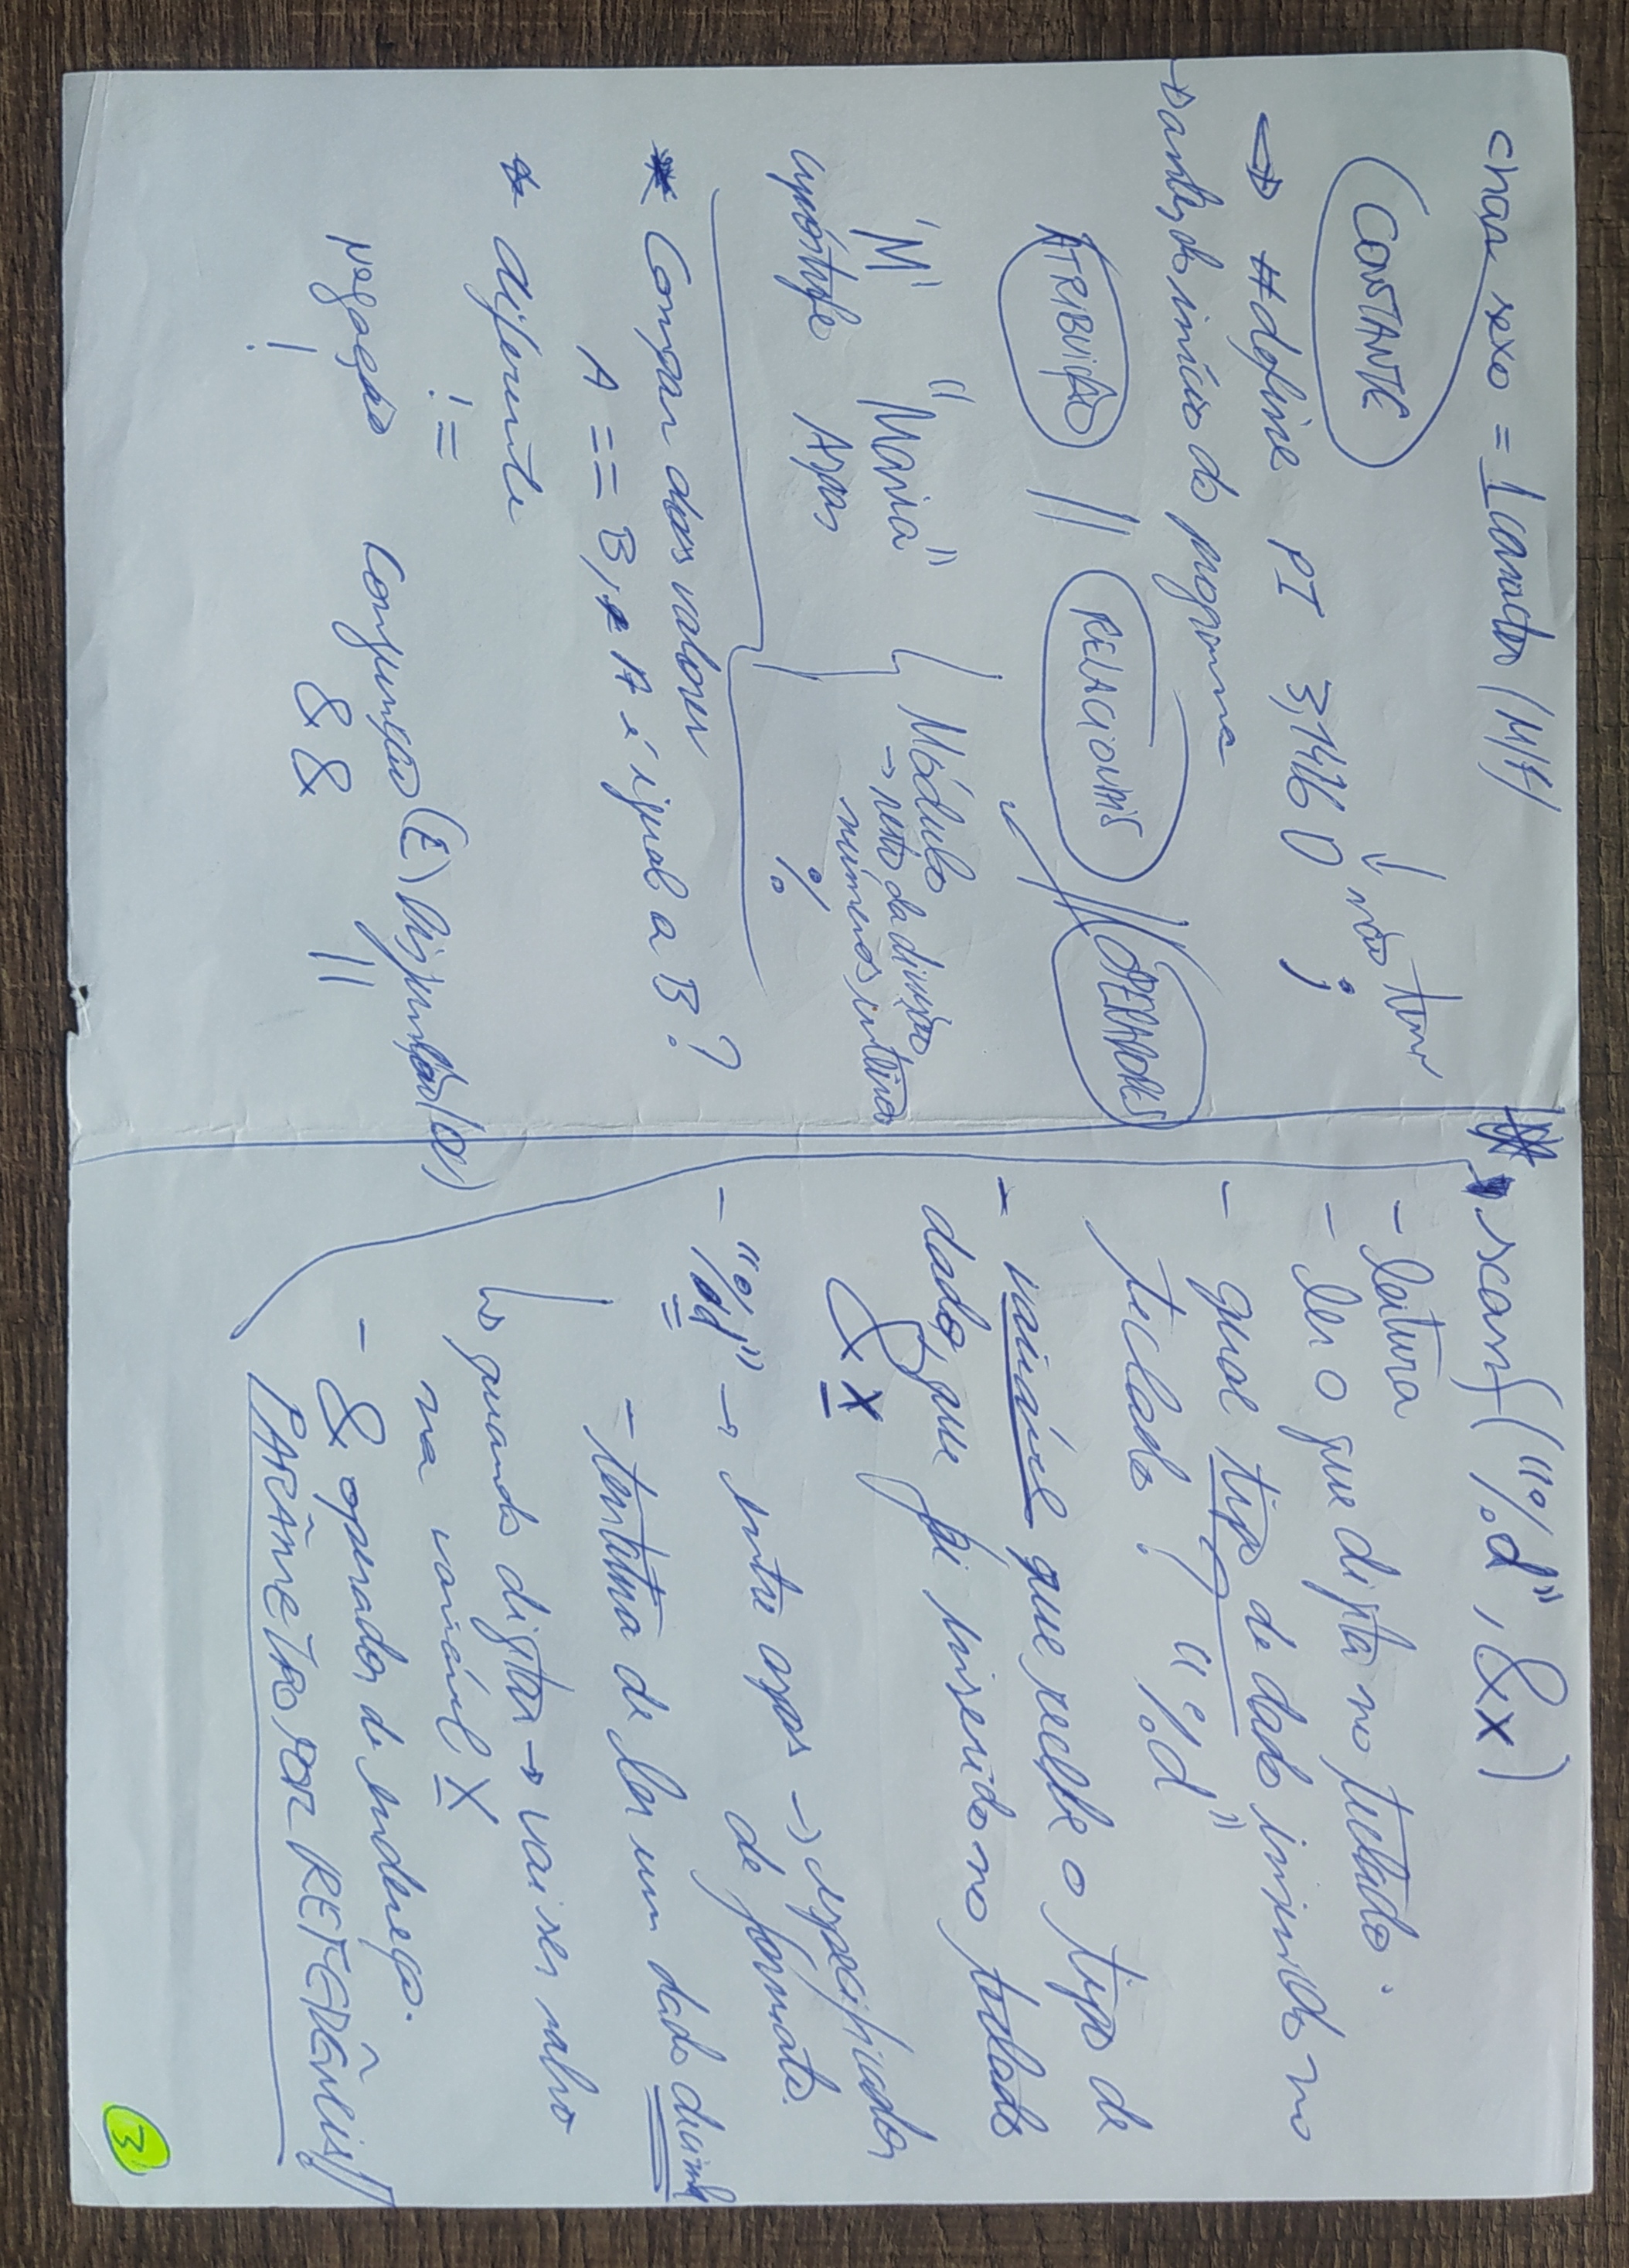 char sexo = 1 caracter (M/F)
CONSTANTE
não tem
⇒ #define PI 3,1416 ;
→ antes do início do programa
ATRIBUIÇÃO || RELACIONAIS // OPERADORES
'M' "Maria"
apóstrofe Aspas
Módulo
→ resto da divisão
números inteiros
%
* Compar dois valores
A == B, A é igual a B?
* diferente
!=
Negação Conjunção (E) Disjunção (OU)
! && ||
scanf("%d", &x)
- leitura
- ler o que digita no teclado.
- qual tipo de dado inserido no
teclado? "%d"
- variável que recebe o tipo de
dado, que foi inserido no teclado
&x
- "%d" → entre aspas → especificador
de formato.
- tentativa de ler um dado decimal
↳ quando digitar → vai ser salvo
na variável X
- & operador de endereço.
PARÂMETRO POR REFERÊNCIA!!
3